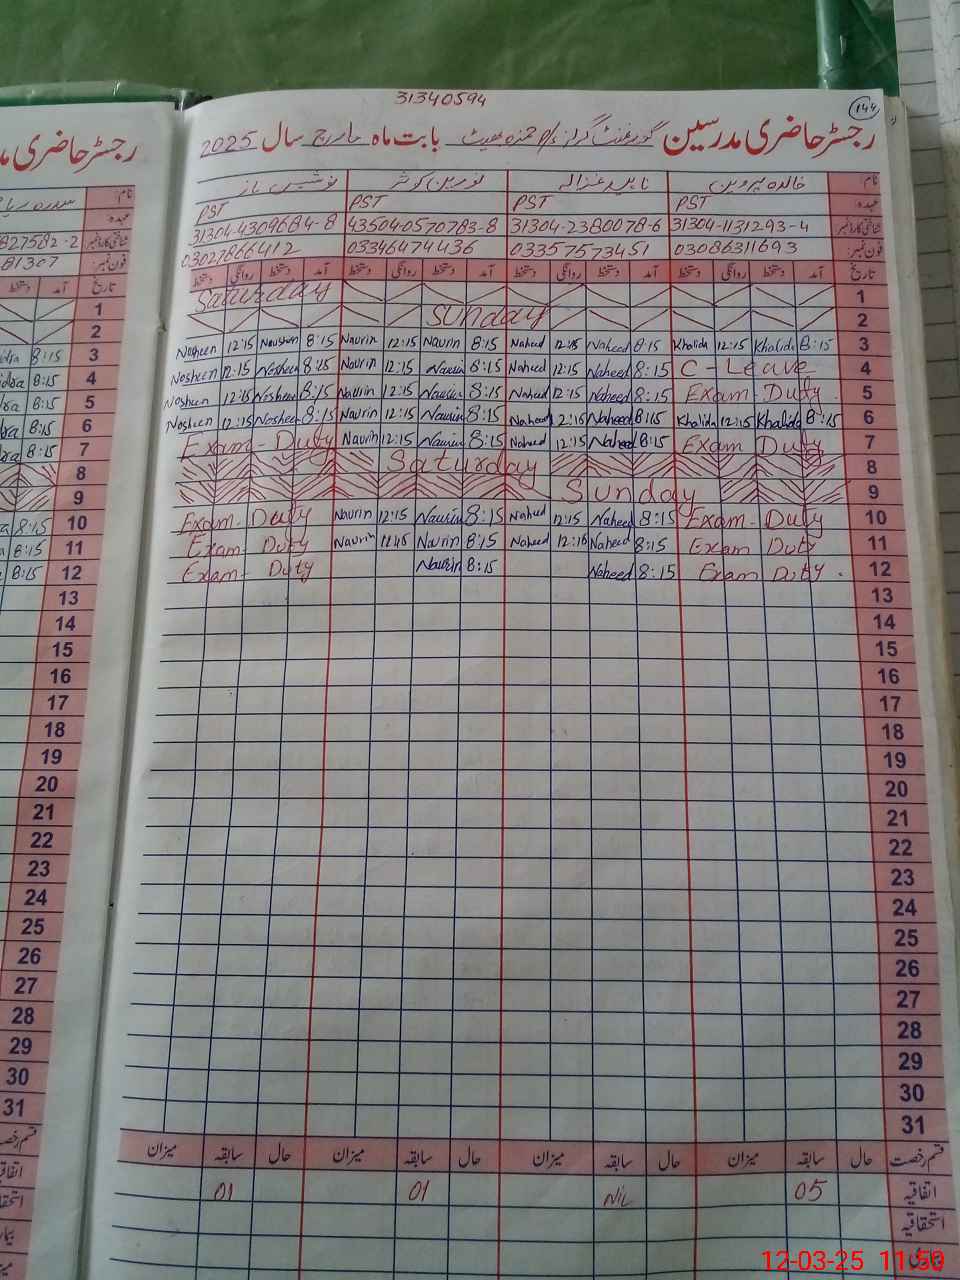 31340594
144
رجسٹر حاضری مدرسین گورنمنٹ گرلز بابت ماہ مارچ سال 2025
نام: خالدہ پروین ناہید غزالہ نورین کوثر نوشین ناز
عہدہ: PST PST PST PST
شناختی کارڈ نمبر 31304-1131293-4 31304-2380078-6 43504-0570783-8 31304-4309684-8
فون نمبر: 03086311693 03357573451 03346474436 03027866412
تاریخ آمد دستخط روانگی دستخط آمد دستخط روانگی دستخط آمد دستخط روانگی دستخط آمد دستخط روانگی دستخط
Saturday 1
Sunday 2
Nosheen 12:15 Nosheen 8:15 Naurin 12:15 Naurin 8:15 Naheed 12:15 Naheed 8:15 Khalida 12:15 Khalida 8:15 3
Nosheen 12:15 Nosheen 8:15 Naurin 12:15 Naurin 8:15 Naheed 12:15 Naheed 8:15 C-Leave 4
Nosheen 12:15 Nosheen 8:15 Naurin 12:15 Naurin 8:15 Naheed 12:15 Naheed 8:15 Exam-Duty 5
Nosheen 12:15 Nosheen 8:15 Naurin 12:15 Naurin 8:15 Naheed 12:15 Naheed 8:15 Khalida 12:15 Khalida 8:15 6
Exam-Duty Naurin 12:15 Naurin 8:15 Naheed 12:15 Naheed 8:15 Exam Duty 7
Saturday 8
Sunday 9
Exam-Duty Naurin 12:15 Naurin 8:15 Naheed 12:15 Naheed 8:15 Exam-Duty 10
Exam-Duty Naurin Naurin 8:15 Naheed Naheed 8:15 Exam Duty 11
Exam-Duty Naurin 8:15 Naheed 8:15 Exam Duty. 12
13
14
15
16
17
18
19
20
21
22
23
24
25
26
27
28
29
30
31
قسم رخصت حال سابقہ میزان حال سابقہ میزان حال سابقہ میزان حال سابقہ میزان
اتفاقیہ 05 NiL 01 01
استحقاقیہ
12-03-25 11:50
رجسٹر حاضری
نام:
عہدہ:
شناختی کارڈ نمبر 827582-2
فون نمبر: 81307
تاریخ آمد دستخط
1
2
8:15 3
8:15 4
8:15 5
8:15 6
8:15 7
8
9
8:15 10
8:15 11
8:15 12
13
14
15
16
17
18
19
20
21
22
23
24
25
26
27
28
29
30
31